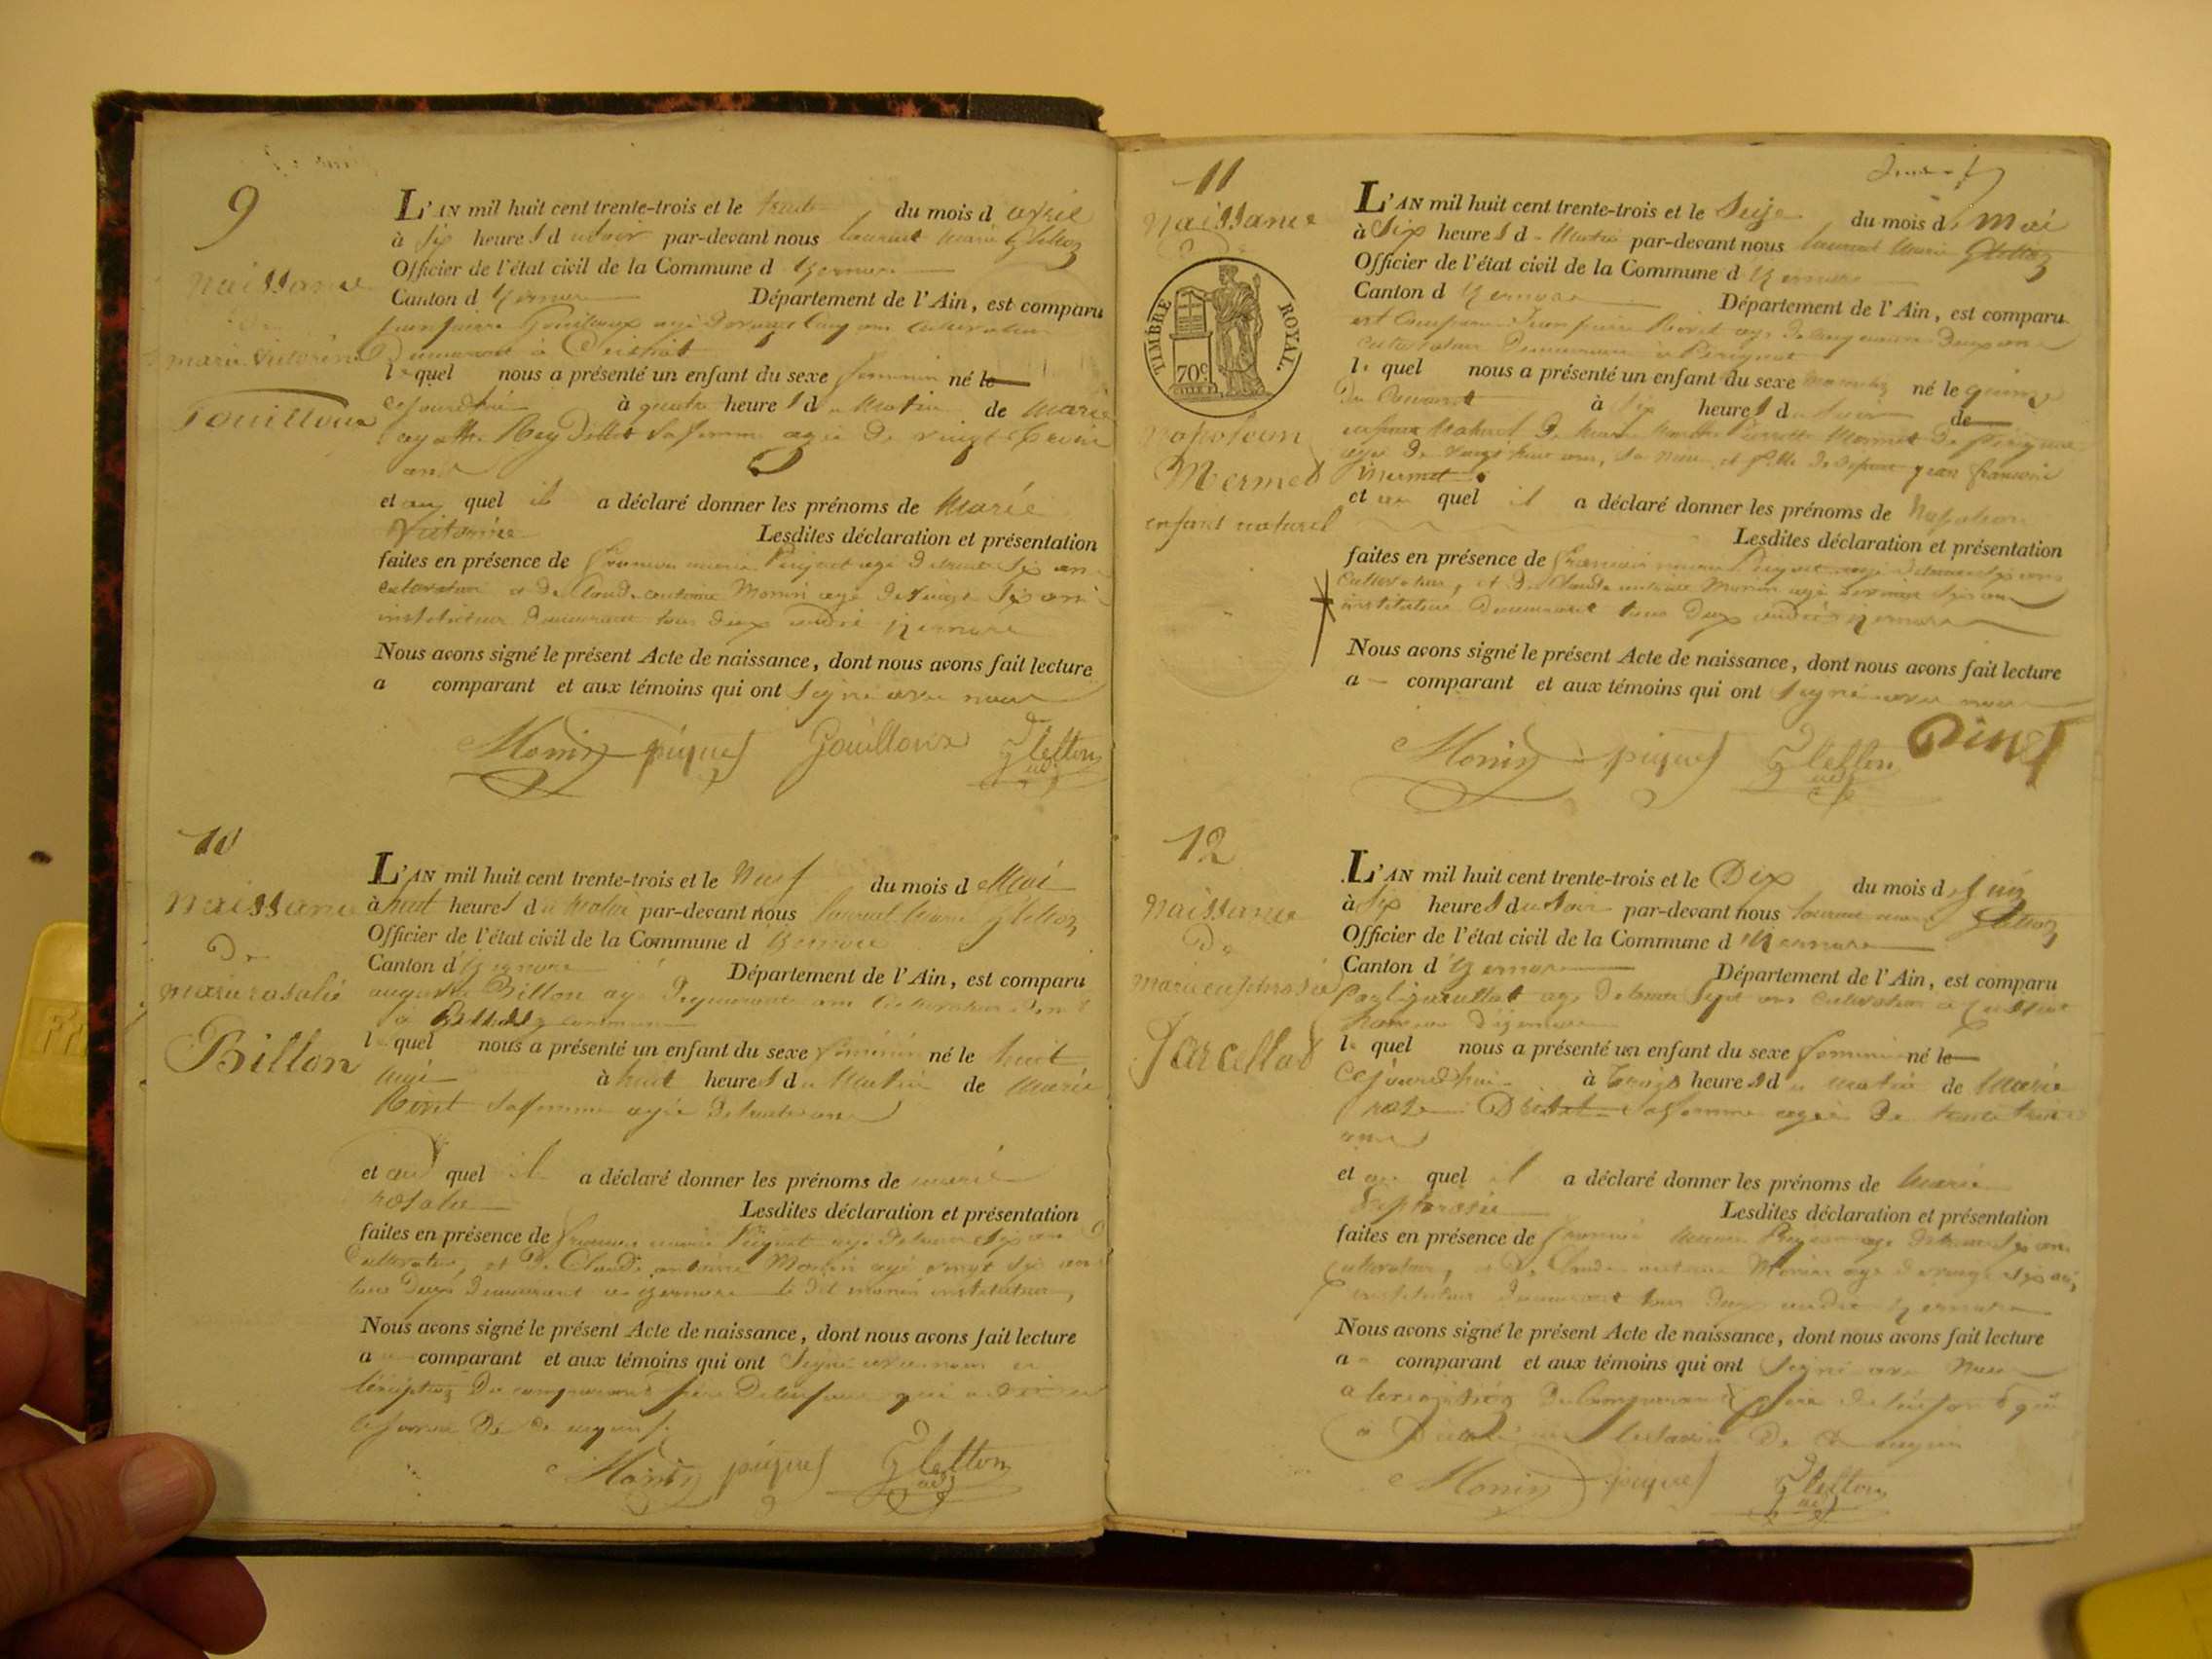 9
Naissance
de
marie victorine
Gouilloux
L'AN mil huit cent trente-trois et le trente du mois d avril
à six heures du soir par-devant nous laurent marie Gletton
Officier de l'état civil de la Commune d Yzernore
Canton d Yzernore Département de l'Ain, est comparu
jean pierre Gouilloux agé de cultivateur
Demeurant à Ceissiat
lequel nous a présenté un enfant du sexe feminin né le
cejourdhui à quatre heures du matin de marie
agathe Rey sa femme agée de vingt
ans
et au quel il a déclaré donner les prénoms de Marie
Victorine Lesdites déclaration et présentation
faites en présence de françois marie Piquet agé de trente six ans
cultivateur et de Claude antoine Monin agé de vingt six ans
instituteur demeurant tous deux audit yzernore
Nous avons signé le présent Acte de naissance, dont nous avons fait lecture
a comparant et aux témoins qui ont signé avec nous
Monin piquet Gouilloux Gletton
10
Naissance
De
marie rosalie
Billon
L'AN mil huit cent trente-trois et le Neuf du mois d Mai
à huit heures du matin par-devant nous laurent marie Gletton
Officier de l'état civil de la Commune d Yzernore
Canton d'Yzernore Département de l'Ain, est comparu
Billon agé de quarante ans Cultivateur
à
lequel nous a présenté un enfant du sexe féminin né le huit
mai à huit heures du Matin de Marie
sa femme agée de trente ans
et au quel il a déclaré donner les prénoms de marie
rosalie Lesdites déclaration et présentation
faites en présence de françois marie Piquet agé de trente six ans
Cultivateur, et De Claude antoine Monin agé vingt six ans
tous Deux Demeurant a yzernore le dit monin instituteur,
Nous avons signé le présent Acte de naissance, dont nous avons fait lecture
a comparant et aux témoins qui ont signé avec nous
Du comparant père De lenfant qui a
De ce requis.
Monin piquet Gletton
11
Naissance
TIMBRE ROYAL.
70c
Napoléon
Mermet
enfant naturel
L'AN mil huit cent trente-trois et le Seize du mois de Mai
à Six heures du Matin par-devant nous laurent Marie Gletton
Officier de l'état civil de la Commune d Yzernore
Canton d Yzernore Département de l'Ain, est comparu
est Comparu Jean pierre agé de cinquante Deux ans
cultivateur Demeurant à Perignat
lequel nous a présenté un enfant du sexe masculin né le quinze
Du Courant à six heures du soir de
enfant Naturel De Marie Pierrette Mermet De Perignat
agée De vingt huit ans, sa mère et fille De defunt jean françois
Mermet
et au quel il a déclaré donner les prénoms de Napoléon
Lesdites déclaration et présentation
faites en présence de François marie Piquet agé de trente six ans
Cultivateur, et De Claude antoine Monin agé de vingt six ans
instituteur Demeurant tous Deux audit yzernore
Nous avons signé le présent Acte de naissance, dont nous avons fait lecture
a comparant et aux témoins qui ont signé avec nous
Monin piquet Gletton
12
Naissance
De
marie euphrosie
Jarcellat
L'AN mil huit cent trente-trois et le Dix du mois d Juin
à Six heures du Soir par-devant nous laurent marie Gletton
Officier de l'état civil de la Commune d Yzernore
Canton d'Yzernore Département de l'Ain, est comparu
agé de trente Sept ans cultivateur a
hameau d'yzernore
lequel nous a présenté un enfant du sexe feminin né le
Cejourdhui à trois heures du matin de Marie
rose sa femme agée De trente
ans
et au quel il a déclaré donner les prénoms de Marie
Euphrosie Lesdites déclaration et présentation
faites en présence de françois marie Piquet agé De trente Six ans
Cultivateur, et De Claude antoine Monin agé de vingt six ans,
instituteur Demeurant tous deux audit yzernore
Nous avons signé le présent Acte de naissance, dont nous avons fait lecture
a comparant et aux témoins qui ont signé avec Nous
a lexception Du Comparant père De lenfant qui
a De ce requis
Monin piquet Gletton